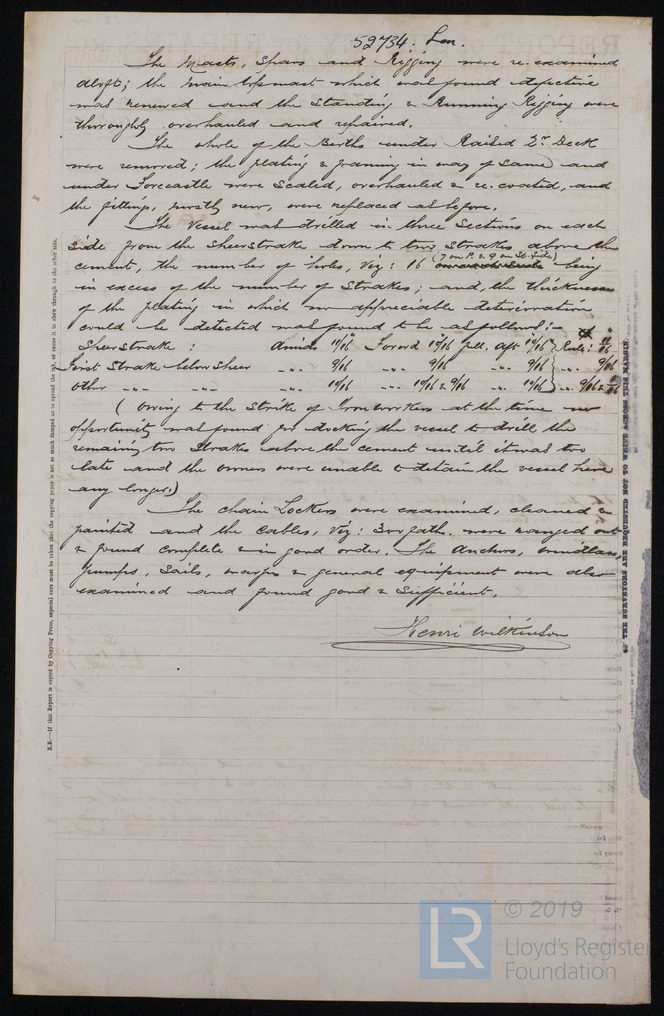 52734. Lon.
The Masts, Spars and Rigging were re-examined
aloft; the Main topmast which was found defective
was renewed and the Standing & Running Rigging were
thoroughly overhauled and repaired.
The whole of the Berths under Raised Qr Deck
were removed; the plating & framing in way of same and
under Forecastle were scaled, overhauled & re.coated, and
the fittings, mostly new, were replaced as before.
The Vessel was drilled in three Sections on each
side from the Sheerstrake down to two Strakes above the
(7 on P. & 9 on St. Side)
cement, the number of holes, Viz: 16 being
in excess of the number of Strakes; and, the thickness
of the plating in which no appreciable deterioration
could be detected was found to be as follows:-
Sheerstrake : Amids 11/16 Forard 10/16 full. Aft 10/16 Rule: 11/16
First Strake below Sheer " 9/16 " 9/16 " 9/16 " 9/16
Other " " " 10/16 " 10/16 & 9/16 " 10/16 " 9/16 & 10/16
(Owing to the Strike of Ironworkers at the time no
opportunity was found for docking the vessel to drill the
remaining two Strakes above the cement until it was too
late and the owners were unable to detain the vessel here
any longer.)
The chain Lockers were examined, cleaned &
painted and the Cables, Viz: 300 faths. were ranged out
& found complete & in good order. The Anchors, windlass,
pumps, Sails, warps & general equipment were also
examined and found good & Sufficient.
Henri Wilkinson
N.B.—If this Report is copied by Copying Press, especial care must be taken that the copying paper is not so much damped as to spread the ink, or cause it to show through to the other side.
THE SURVEYORS ARE REQUESTED NOT TO WRITE ACROSS THIS MARGIN.
LR
© 2019
Lloyd's Register
Foundation